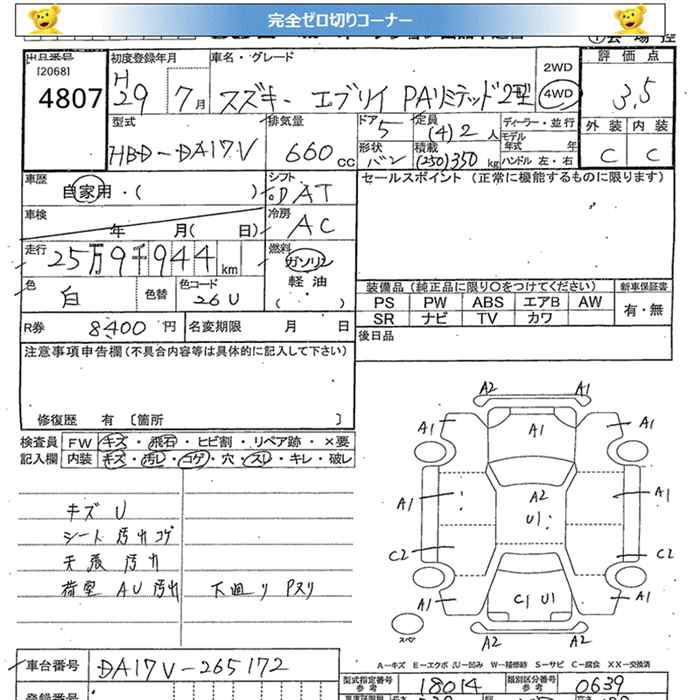 完全ゼロ切りコーナー
出品番号 初度登録年月 車名・グレード 2WD 評価点
[2068] 4807
H29 7月 スズキ エブリイ PAリミテッド2型 4WD 3.5
型式 排気量 ドア 定員 ディーラー・並行 外装 内装
HBD-DA17V 660cc 5 (4)2人 モデル年式 年
形状 積載
バン (250)350kg ハンドル 左・右 C C
車歴 自家用・( ) シフト DAT セールスポイント(正常に機能するものに限ります)
車検 年 月( 日) 冷房 AC
走行 25万9千944km 燃料 ガソリン
軽油
( )
色 白 色替 色コード 26U
装備品(純正品に限り○をつけてください) 新車保証書
PS PW ABS エアB AW 有・無
SR ナビ TV カワ
R券 8400円 名変期限 月 日 後日品
注意事項申告欄(不具合内容等は具体的に記入して下さい)
修復歴 有〔箇所 〕
検査員 FW キズ・飛石・ヒビ割・リペア跡・×要
記入欄 内装 キズ・汚レ・コゲ・穴・スレ・キレ・破レ
キズ U
シート 汚れ コゲ
天張 汚れ
荷室 AU 汚れ 下廻り Pスリ
A2 A1
A1 A1 A1
A1 A2 A1
U1
C2 C2
A1 C1 U1 A1
スペア A2 A2
A-キズ E-エクボ U-凹み W-補修跡 S-サビ C-腐食 XX-交換済
車台番号 DA17V-265172
型式指定番号 参考 18014 類別区分番号 参考 0639
登録番号